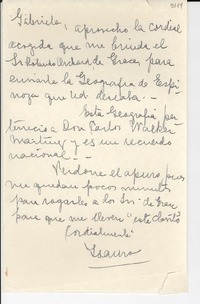 Gabriela, aprovecho la cordial
acogida que me brinda el
Sr. Roberto de Grace, para
enviarle la Geografia de Espi
noza que Ud. deseaba. -
Esta Geografia per
teneció a Don Carlos Walker
Martinez y es un recuerdo
nacional. -
Perdone el apuro, pues
me quedan pocos minutos
para rogarles a los Srs. de Grace
para que me lleven "este librito"
Cordialmente
Isauro